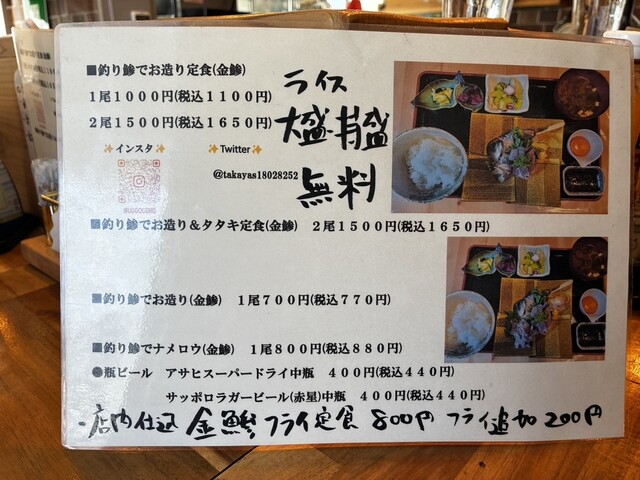 ■釣り鯵でお造り定食(金鯵)
1尾1000円(税込1100円)
2尾1500円(税込1650円)
ライス
大盛・特盛
無料
✨インスタ✨ ✨Twitter✨
@takayas18028252
■釣り鯵でお造り&タタキ定食(金鯵) 2尾1500円(税込1650円)
■釣り鯵でお造り(金鯵) 1尾700円(税込770円)
■釣り鯵でナメロウ(金鯵) 1尾800円(税込880円)
●瓶ビール アサヒスーパードライ中瓶 400円(税込440円)
サッポロラガービール(赤星)中瓶 400円(税込440円)
・店内仕込 金鯵フライ定食 800円 フライ追加 200円